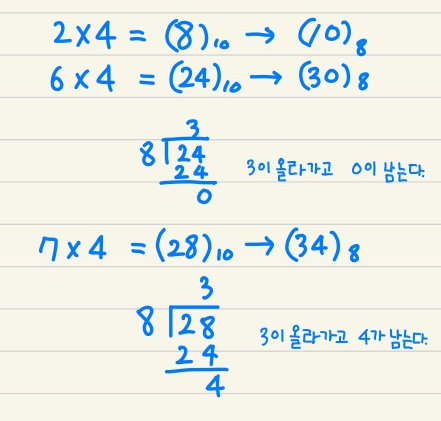 2 × 4 = (8)₁₀ → (10)₈
6 × 4 = (24)₁₀ → (30)₈
3
8 24
24
3이 올라가고 0이 남는다.
0
7 × 4 = (28)₁₀ → (34)₈
3
8 28
3이 올라가고 4가 남는다.
24
4